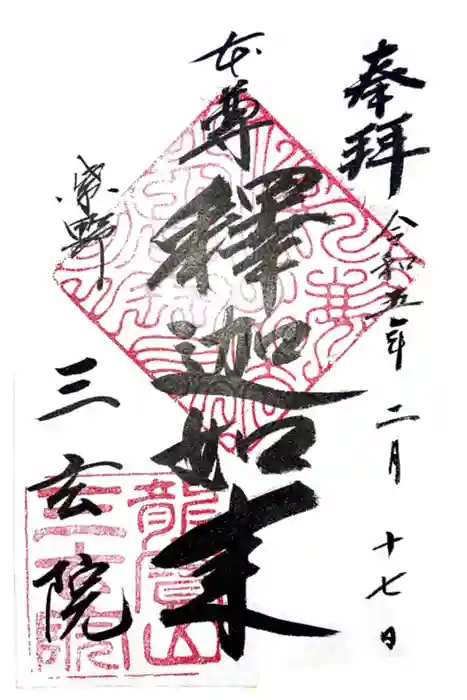 奉拝
令和五年二月十七日
本尊
釋迦如来
紫野
三玄院
龍寳山
三玄院